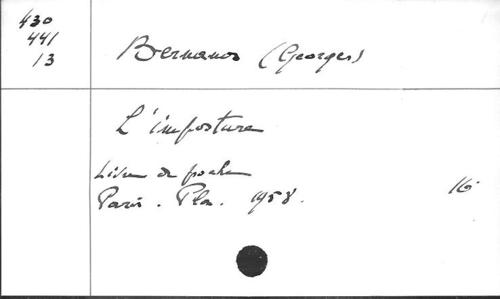 430
441
13
Bernanos (Georges)
L'imposture
Livre de poche
Paris. Plon. 1958.
16